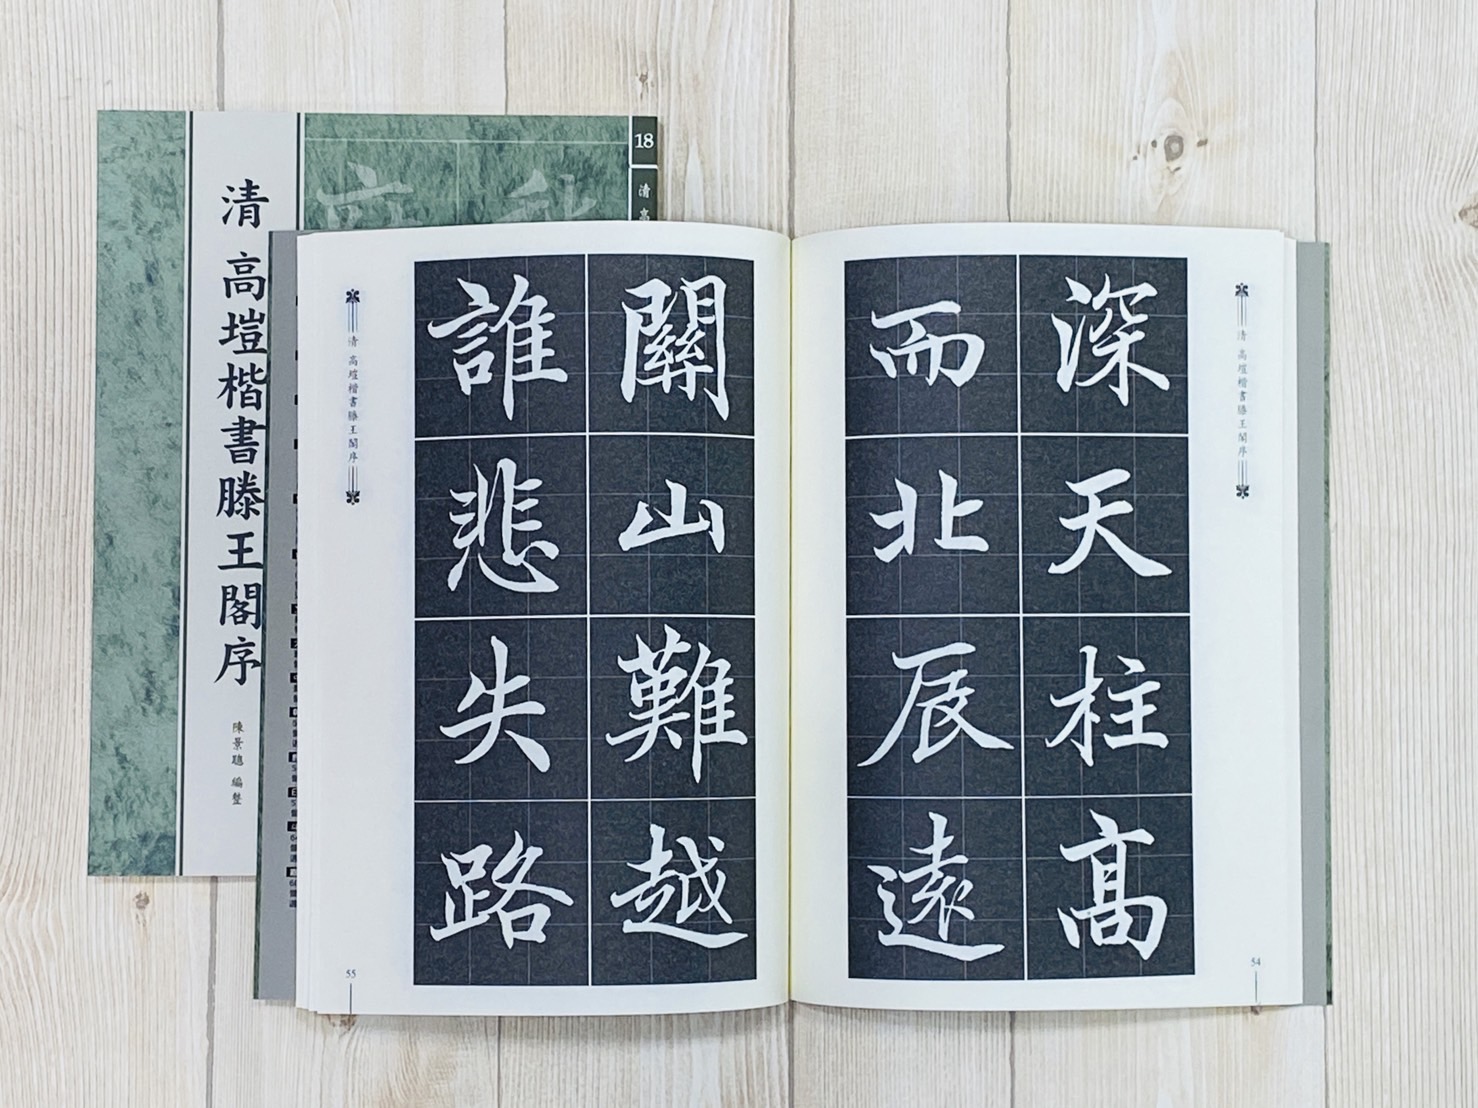 清 高塏楷書滕王閣序
陳景聰 編整
18
清 高
清 高塏楷書滕王閣序
深天柱高
而北辰遠
54
關山難越
誰悲失路
清 高塏楷書滕王閣序
55